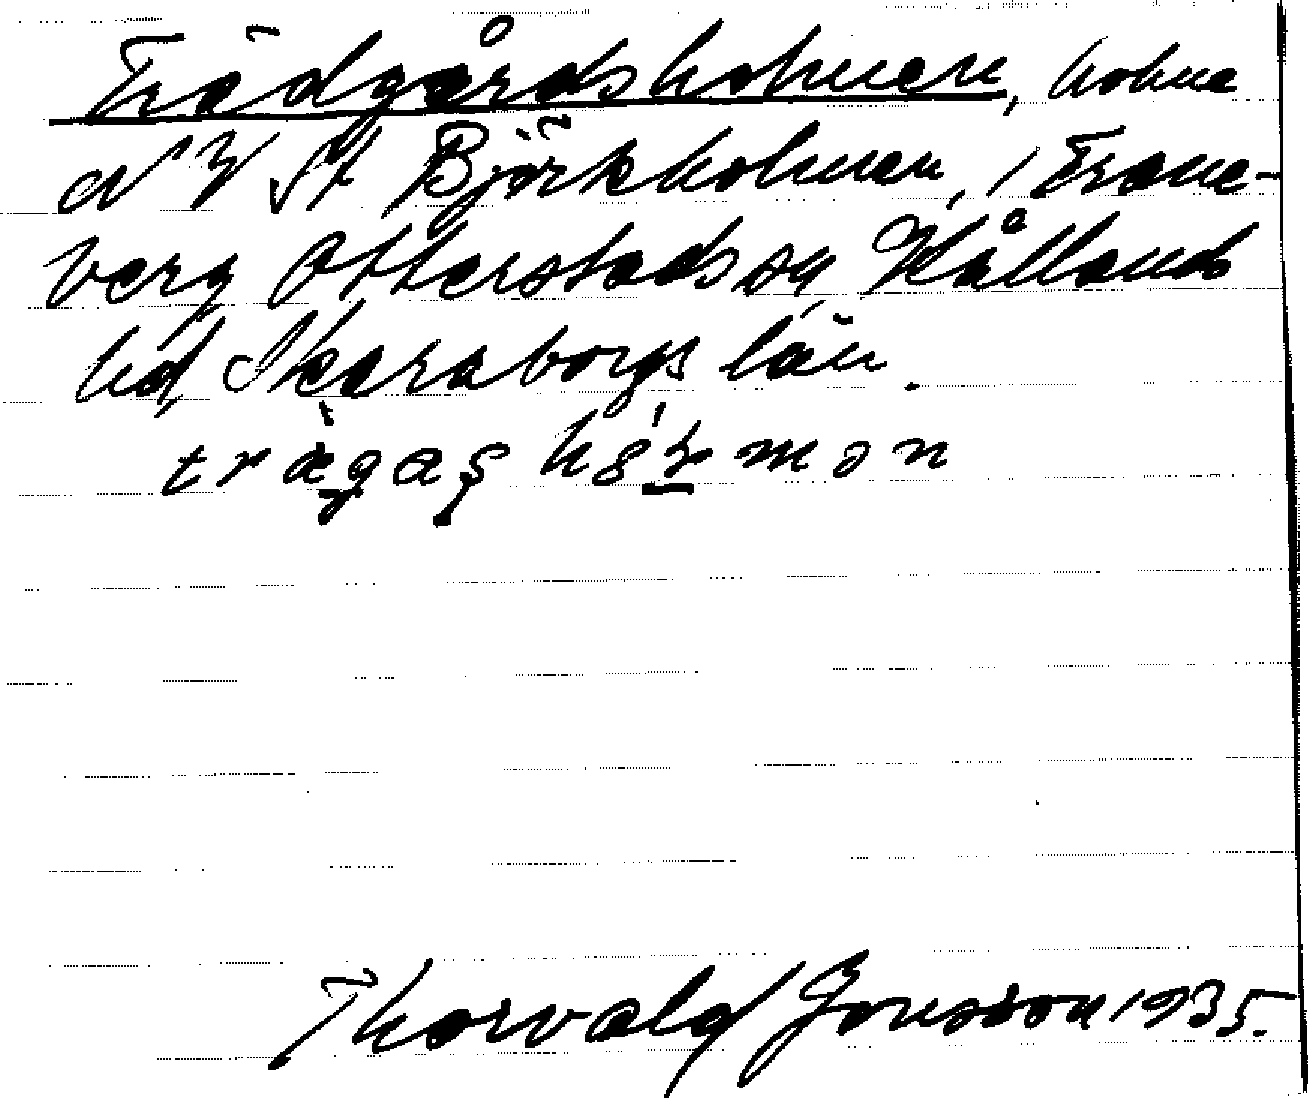 Trädgårdsholmen, holme
NV St Björkholmen, i Trane-
berg Otterstads sn Kållands
hd, Skaraborgs län.
Thorvald Jonsson 1935.